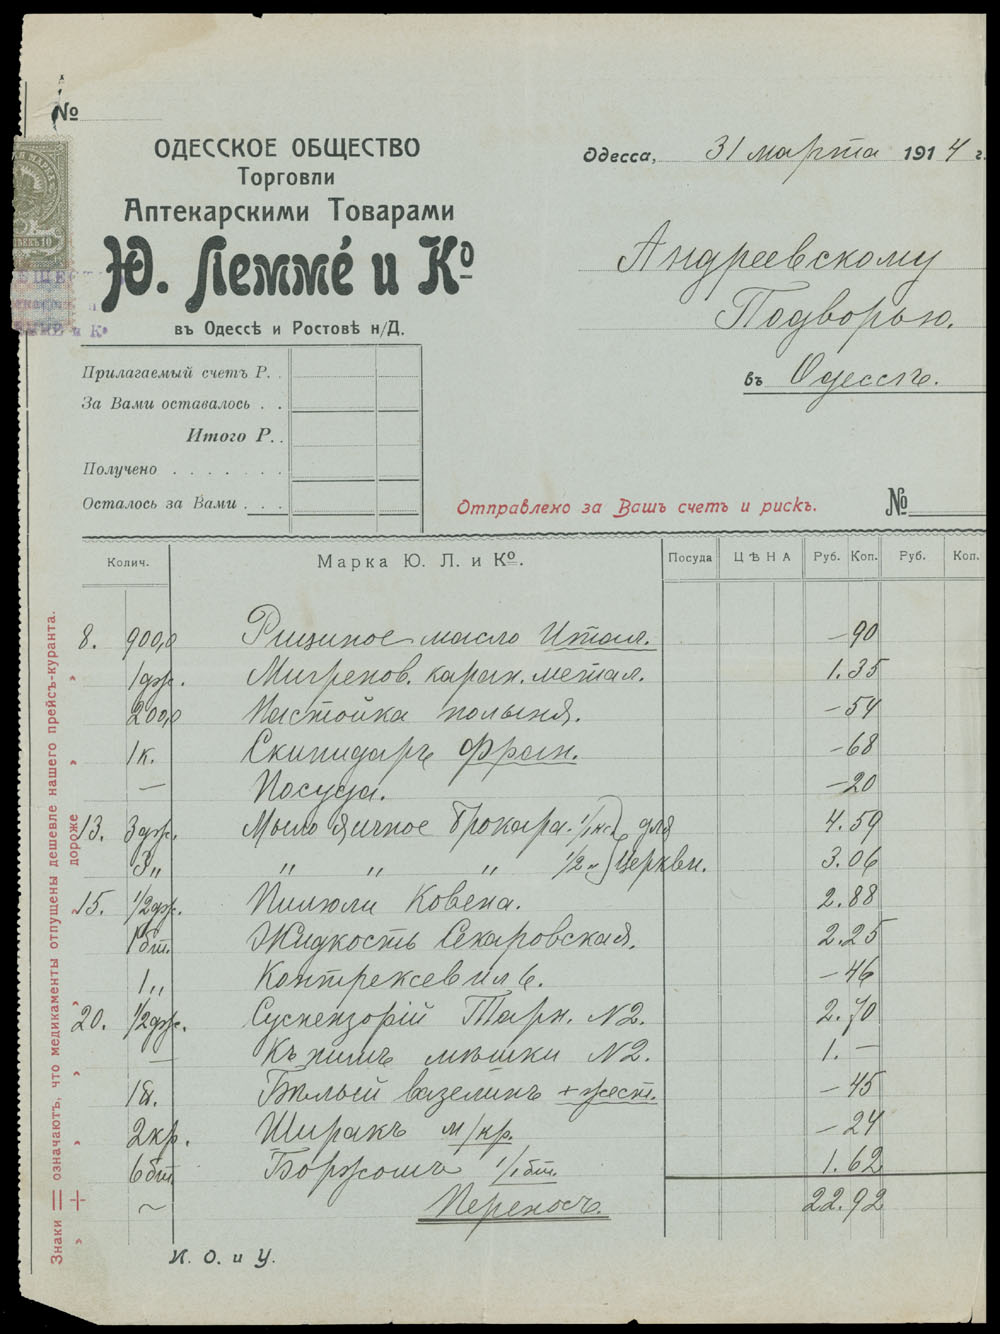 №
ОДЕССКОЕ ОБЩЕСТВО
Торговли
Аптекарскими Товарами
Ю. Леммé и К°
въ Одессѣ и Ростовѣ н/Д.
Одесса, 31 марта 1914 г.
Андреевскому
Подворью.
въ Одессѣ.
Прилагаемый счетъ Р. .
За Вами оставалось . .
Итого Р. .
Получено . . . . . . .
Осталось за Вами . . .
Отправлено за Вашъ счетъ и рискъ.
№
Колич. Марка Ю. Л. и К°. Посуда ЦѢНА Руб. Коп. Руб. Коп.
8. 900,0 Рициное масло Итал. — 90
" 1 дж. Мигренов. каран. метал. 1. 35
200,0 Настойка полыня. — 54
" 1 к. Скипидаръ фран. — 68
— Посуда. — 20
13. 3 дж. Мыло яичное Брокара 1/1 для 4. 59
3 " " " " 1/2 " Церкви. 3. 06
15. 1/2 дж. Пилюли Ковена. 2. 88
1 бт. Жидкость Секаровская. 2. 25
1 " Контрексевиль. — 46
20. 1/2 дж. Суспензорій Тарн. N2. 2. 70
— Къ нимъ мѣшки N2. 1. —
" Бѣлый вазелинъ + жест. — 45
" 2 кр. Ширакъ м/кр. — 24
6 бт. Боржомъ 1/1 бт. 1. 62
~ Переносъ. 22. 92
И. О. и У.
Знаки = означаютъ, что медикаменты отпущены дешевле нашего прейсъ-куранта.
" + " " " " дороже " "